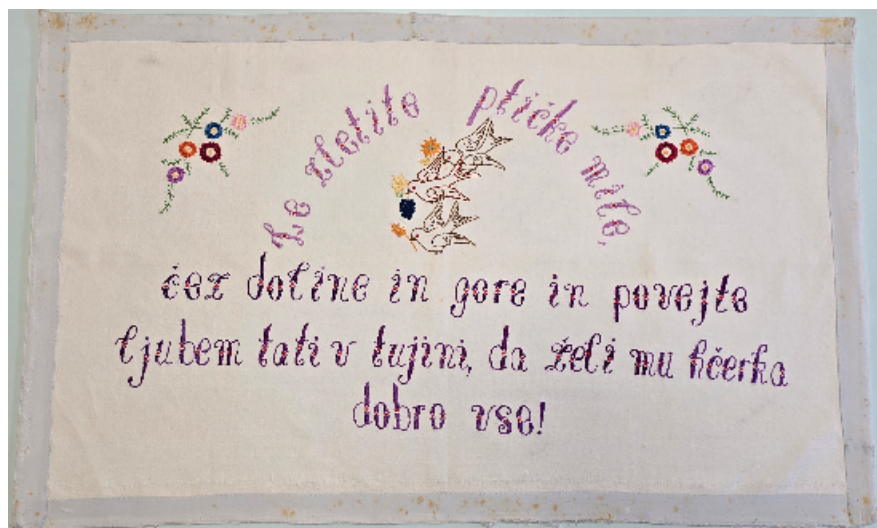 Le zletite ptičke mile,
čez doline in gore in povejte
ljubem tati v tujini, da želi mu hčerka
dobro vse!